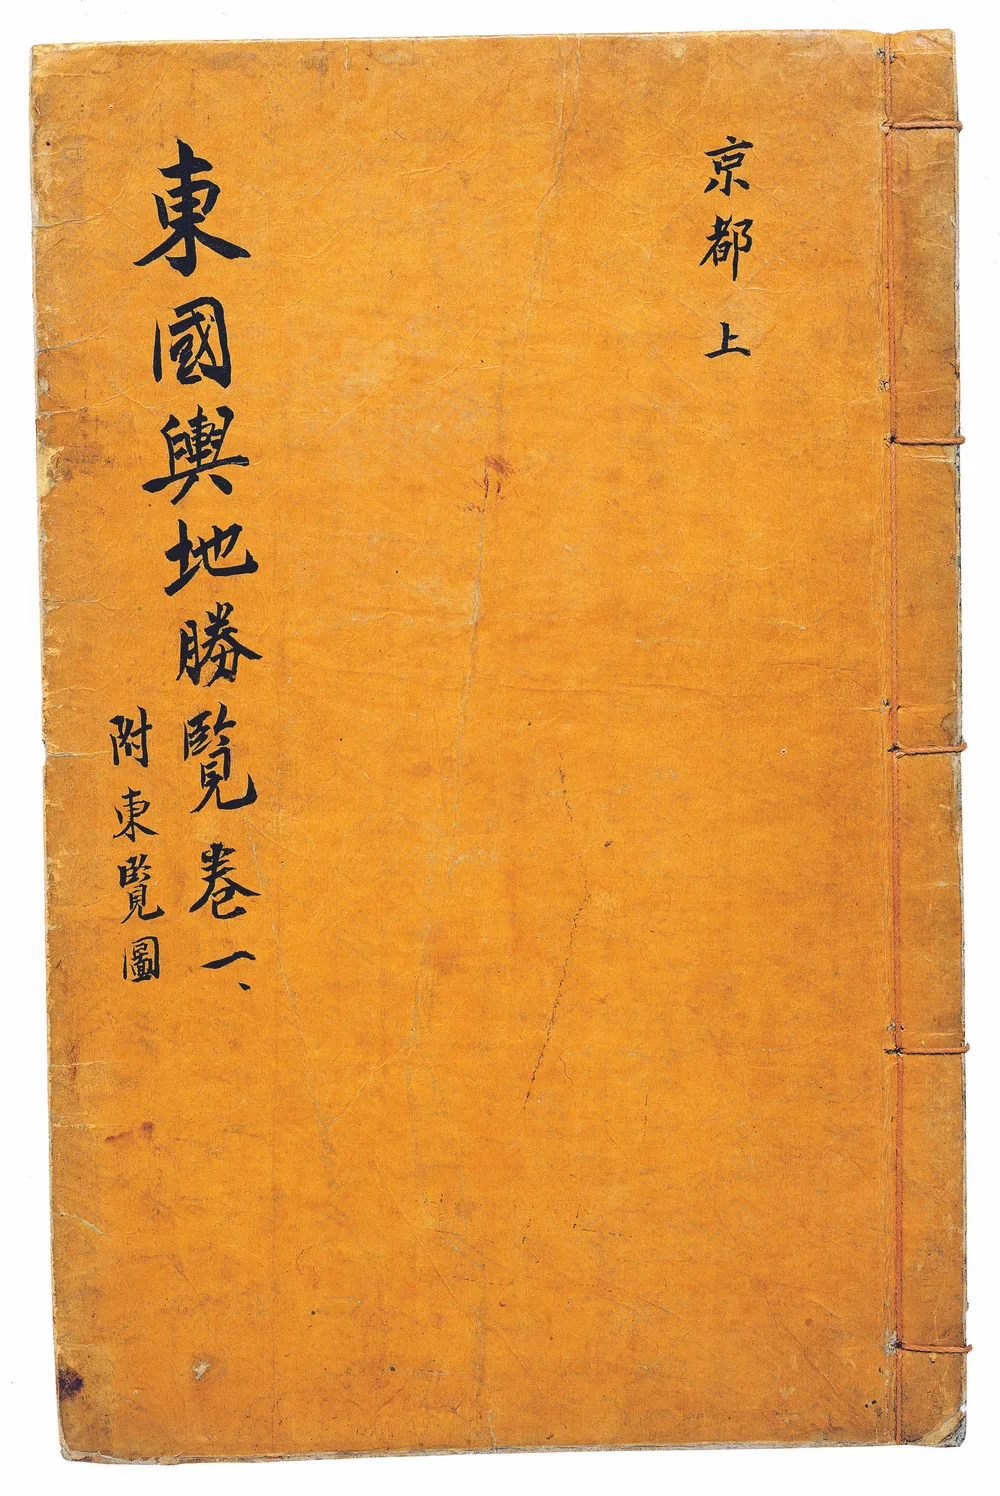 京都 上
東國輿地勝覽卷一
附東覽圖